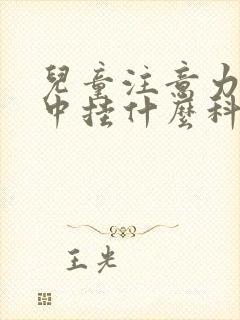 兒童注意力
中挂什麼科
王光